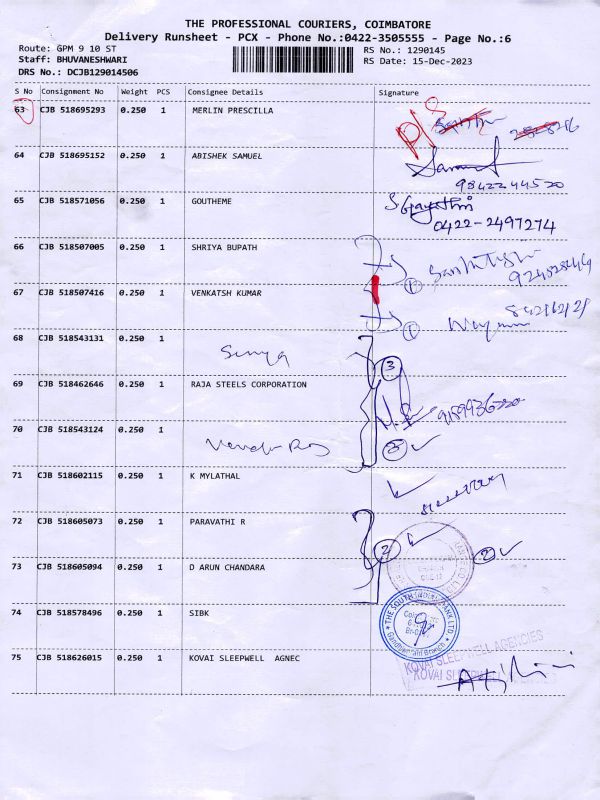 THE PROFESSIONAL COURIERS, COIMBATORE
Delivery Runsheet - PCX - Phone No.:0422-3505555 - Page No.:6
Route: GPM 9 10 ST
RS No.: 1290145
Staff: BHUVANESHWARI
RS Date: 15-Dec-2023
DRS No.: DCJB129014506
S No Consignment No Weight PCS Consignee Details Signature
63 CJB 518695293 0.250 1 MERLIN PRESCILLA
P/S
64 CJB 518695152 0.250 1 ABISHEK SAMUEL
9842244520
65 CJB 518571056 0.250 1 GOUTHEME
S Gayathri
0422-2497274
66 CJB 518507005 0.250 1 SHRIYA BUPATH
1
67 CJB 518507416 0.250 1 VENKATSH KUMAR
1
68 CJB 518543131 0.250 1
Surya
3
69 CJB 518462646 0.250 1 RAJA STEELS CORPORATION
70 CJB 518543124 0.250 1
3
71 CJB 518602115 0.250 1 K MYLATHAL
72 CJB 518605073 0.250 1 PARAVATHI R
2 2
73 CJB 518605094 0.250 1 D ARUN CHANDARA
74 CJB 518578496 0.250 1 SIBK
THE SOUTH INDIAN BANK LTD
75 CJB 518626015 0.250 1 KOVAI SLEEPWELL AGNEC
KOVAI SLEEPWELL AGENCIES
KOVAI SLEEPWELL